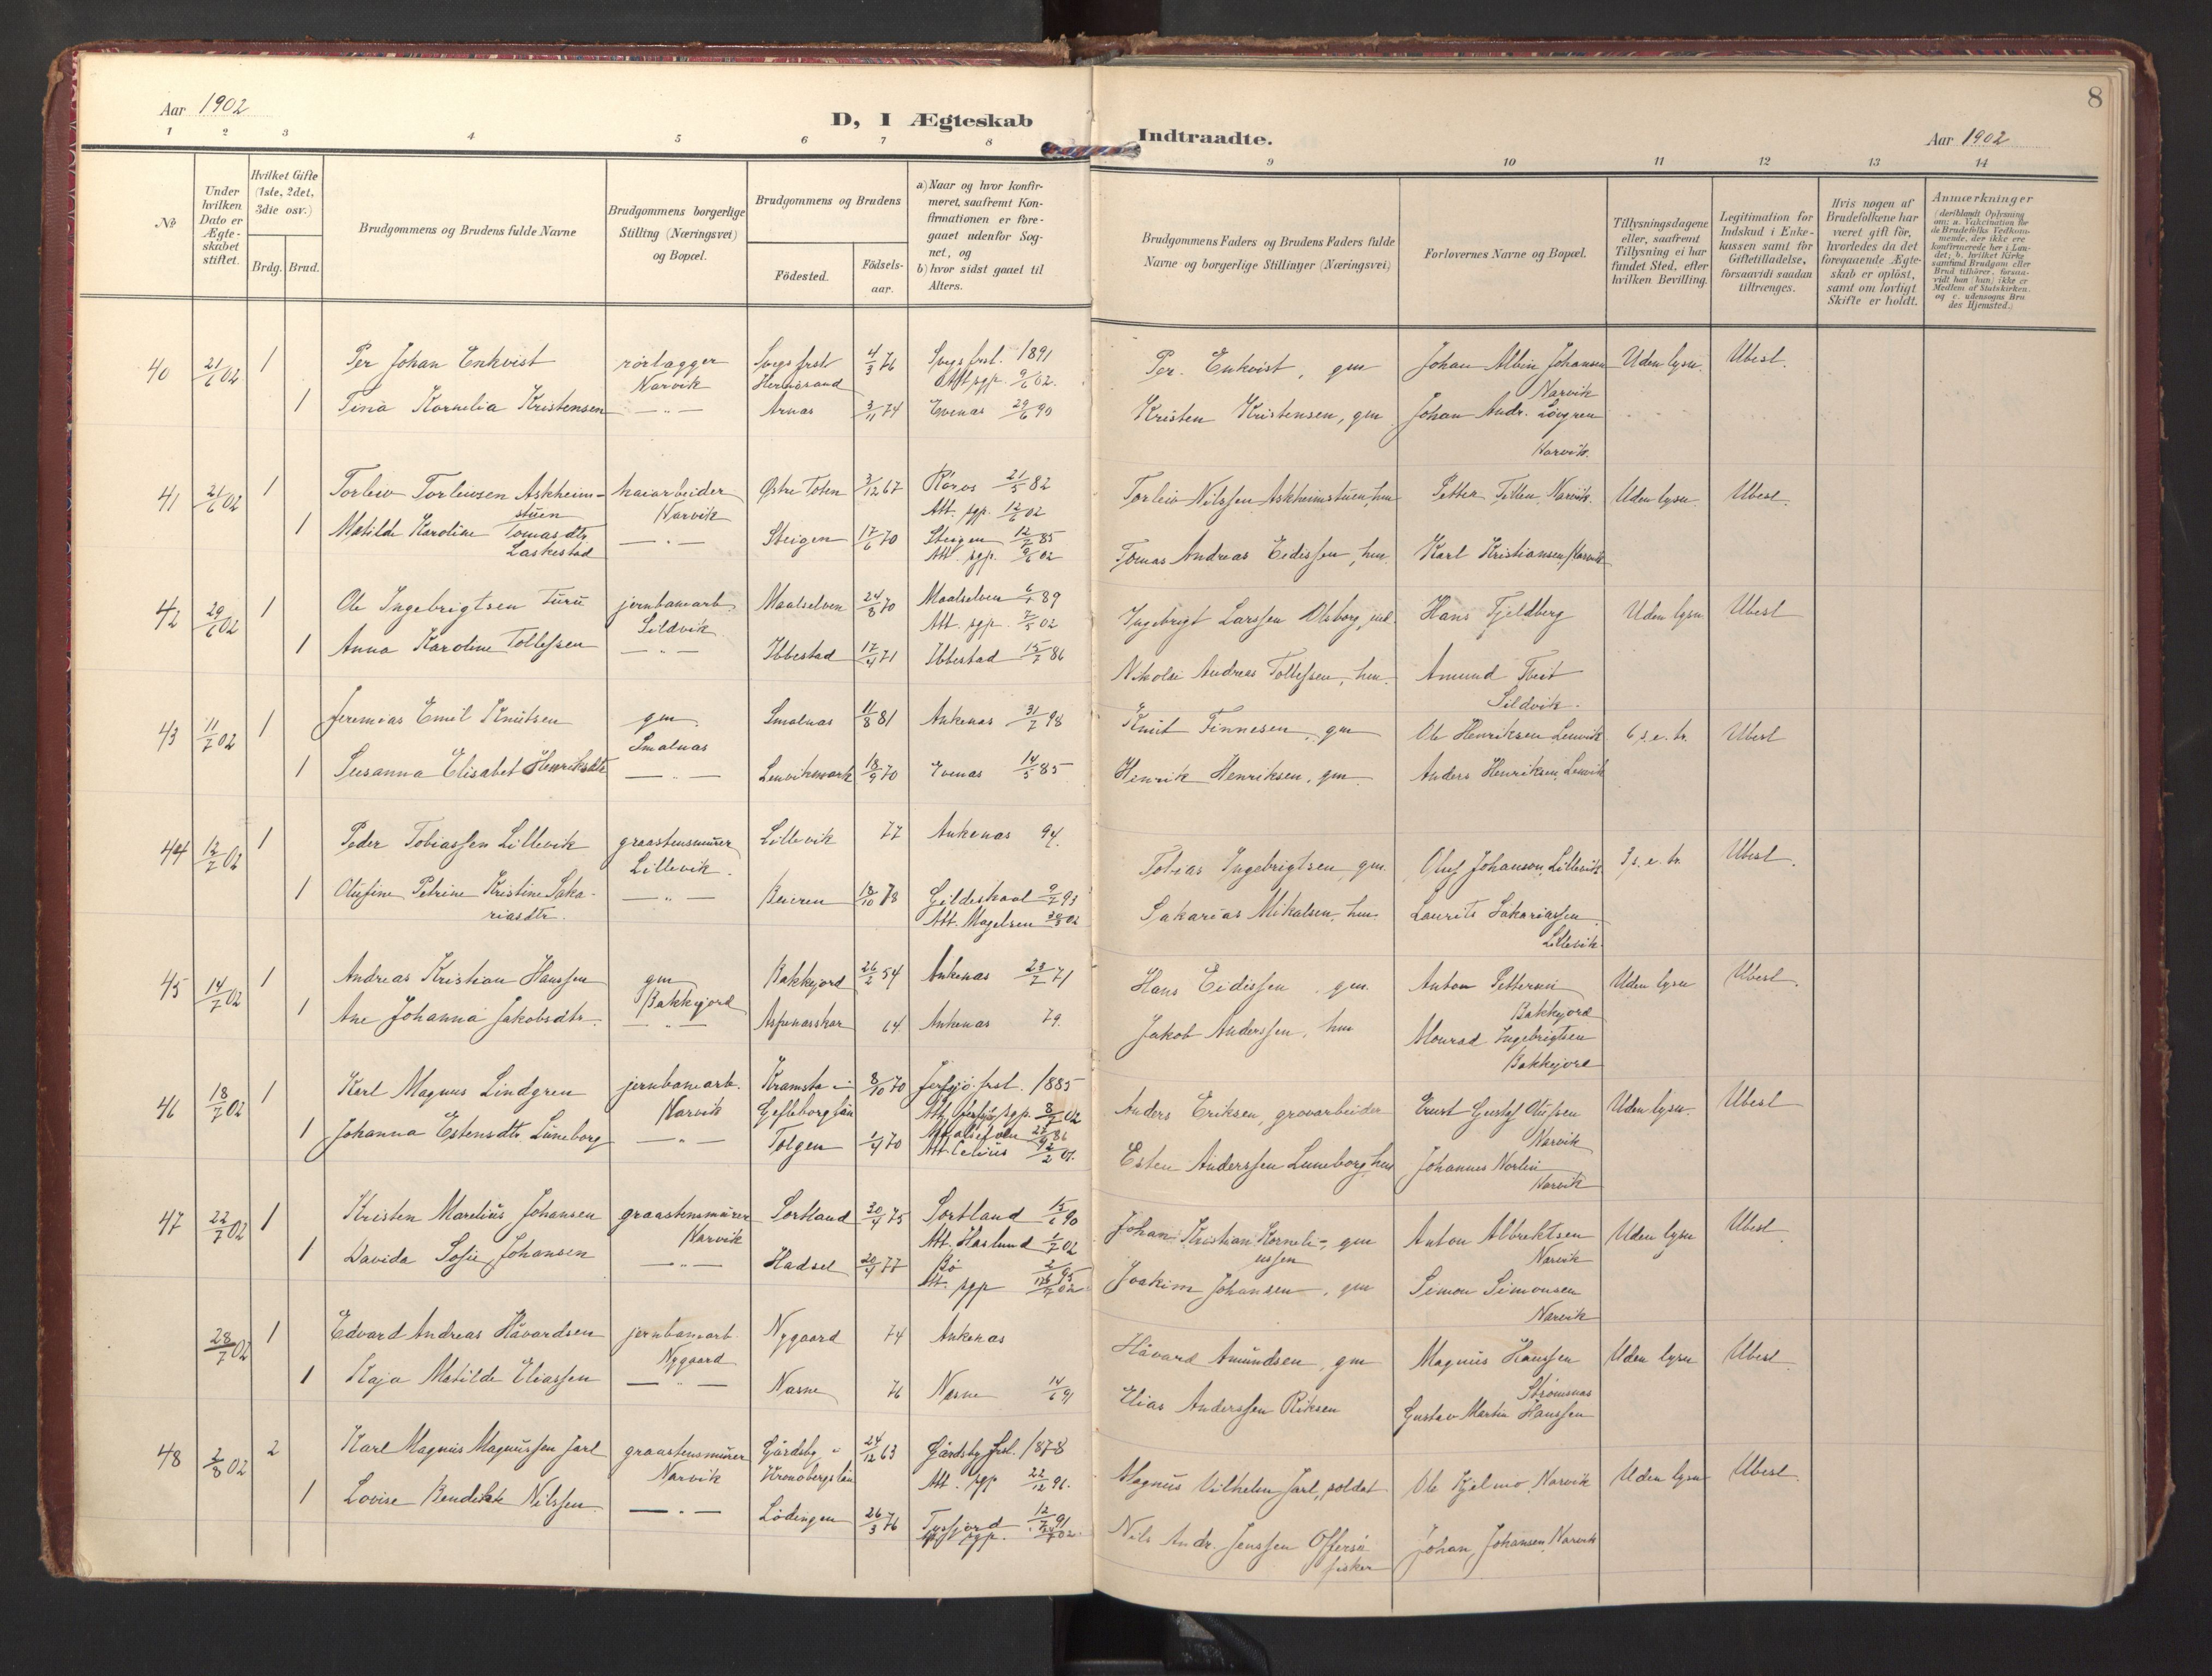 Aar 1902
D, I Ægteskab Indtraadte.
Aar 1902
8
1 2 3 4 5 6 7 8 9 10 11 12 13 14
№
Under hvilken Dato er Ægteskabet stiftet.
Hvilket Gifte (1ste, 2det, 3die osv.)
Brdg. Brud.
Brudgommens og Brudens fulde Navne
Brudgommens borgerlige Stilling (Næringsvei) og Bopæl.
Brudgommens og Brudens
Födested.
Födsels-aar.
a) Naar og hvor konfirmeret, saafremt Konfirmationen er foregaaet udenfor Sognet, og
b) hvor sidst gaaet til Alters.
Brudgommens Faders og Brudens Faders fulde Navne og borgerlige Stillinger (Næringsvei)
Forlovernes Navne og Bopæl.
Tillysningsdagene eller, saafremt Tillysning ei har fundet Sted, efter hvilken Bevilling.
Legitimation for Indskud i Enkekassen samt for Giftetilladelse, forsaavidt saadan tiltrænges.
Hvis nogen af Brudefolkene har været gift för, hvorledes da det foregaaende Ægteskab er oplöst, samt om lovligt Skifte er holdt.
Anmærkninger
(deriblandt Oplysning om: a. Vakcination for de Brudefolks Vedkommende, der ikke ere konfirmerede her i Landet; b. hvilket Kirkesamfund Brudgom eller Brud tilhörer, forsaavidt han (hun) ikke er Medlem af Statskirken. og c. udensogns Brudes Hjemsted.)
40 21/6 02 1 Per Johan Enkvist rörlægger Narvik Svegs frst Hernösand 4/3 76 Svegs frst. 1891 Att sgp. 9/6 02. Per. Enkvist, gm Johan Albin Johansen Narvik Uden lysn. Ubest.
1 Tina Kornelia Kristensen — " — Arnas 3/11 74 Evenas 29/6 90 Kristen Kristensen, gm Johan Andr. Lövgren Narvik.
41 21/6 02 1 Torleiv Torleivsen Askheimstuen havarbeider Narvik Østre Toten 3/12 67 Röros 21/5 82 Att. sgp. 12/6 02 Torleiv Nilssen Askheimstuen, hm Petter Tetlen Narvik. Uden lysn. Ubest.
1 Matilde Karoline Tomasdtr. Laskestad — " — Steigen 17/6 70 Steigen 12/7 85 Att. sgp. 9/6 02 Tomas Andreas Eidissen, hm. Karl Kristiansen, Narvik
42 29/6 02 1 Ole Ingebrigtsen Turu jernbanearb. Sildvik Maalselven 24/8 70 Maalselven 89 Att. sgp. 7/5 02 Ingebrigt Larssen Olsborg, ind. Hans Fjeldberg Uden lysn. Ubest
1 Anna Karoline Tollefsen — " — Ibbestad 17/4 71 Ibbestad 15/7 86 Nikolai Andreas Tollefsen, hm. Amund Tveit Sildvik.
43 11/7 02 1 Jeremias Emil Knutsen gm. Smalnas Smalnas 11/8 81 Ankenas 31/7 98 Knut Finnesen, gm Ole Henriksen Lenvik 6 s. e. tr. Ubest
1 Susanna Elisabet Henriksdtr — " — Lenvikmark 18/9 70 Evenas 14/5 85 Henrik Henriksen, gm. Anders Henriksen, Lenvik
44 12/7 02 1 Peder Tobiassen Lillevik graastensmurer Lillevik. Lillevik 77 Ankenas 94. Tobias Ingebrigtsen, gm. Oluf Johanson, Lillevik 3 s. e. tr. Ubest.
1 Olufine Petrine Kristine Sakariasdtr. — " — Beieren 18/10 78 Gildeskaal 9/7 93 Att. Magelsen 02 Sakarias Mikalsen, hm. Laurits Sakariassen Lillevik
45 14/7 02 1 Andreas Kristian Hanssen gm Bakkejord Bakkejord 26/2 54 Ankenas 23/7 71 Hans Eidissen, gm. Anton Pettersen Bakkejord Uden lysn Ubest.
1 Ane Johanna Jakobsdtr. — " — Aspenasskar 64 Ankenas 79. Jakob Anderssen, hm Monrad Ingebrigtsen Bakkejord
46 18/7 02 1 Karl Magnus Lindgren jernbanearb. Narvik Kramsta i Gefleborgslän 8/10 70 Jerfsjö frst. 1885 Anders Eriksen, grovarbeider Ernst Gustaf Olufsen Narvik Uden lysn. Ubest
1 Johanna Estensdtr. Luneborg — " — Tolgen 1/4 70 Esten Anderssen Luneborg, hm Johannes Norlin Narvik
47 22/7 02 1 Kristen Marelius Johansen graastensmurer Narvik Sortland 30/4 75 Sortland 15/6 90 Att. Haslund 1/7 02 Johan Kristian Korneliussen, gm Anton Albrektsen Narvik Uden lysn Ubest.
1 Davida Sofie Johansen — " — Hadsel 20/4 77 Bö Att. sgp Joakim Johansen, gm Simon Simonsen Narvik
28/7 02 1 Edvard Andreas Håvardsen jernbanearb. Nygaard Nygaard 74 Ankenas Håvard Amundsen, gm Magnus Hanssen Strömsnas Uden lysn Ubest.
1 Kaja Matilde Eliassen — " — Nasne 76 Nasne 14/6 91 Elias Anderssen Riksen Gustav Martin Hanssen
48 2/8 02 2 Karl Magnus Magnussen Jarl graastensmurer Narvik Gårdsby i Kronobergslän 24/12 63 Gårdsby frst. 1878 Att. sgp 22/12 96. Magnus Vilhelm Jarl, soldat Ole Kjelmo, Narvik Uden lysn Ubest.
1 Lovise Bendikte Nilssen — " — Lödingen 26/3 76 Tysfjord 12/7 91 Att sgp. Nils Andr. Jenssen Offersö fisker Johan Johansen, Narvik